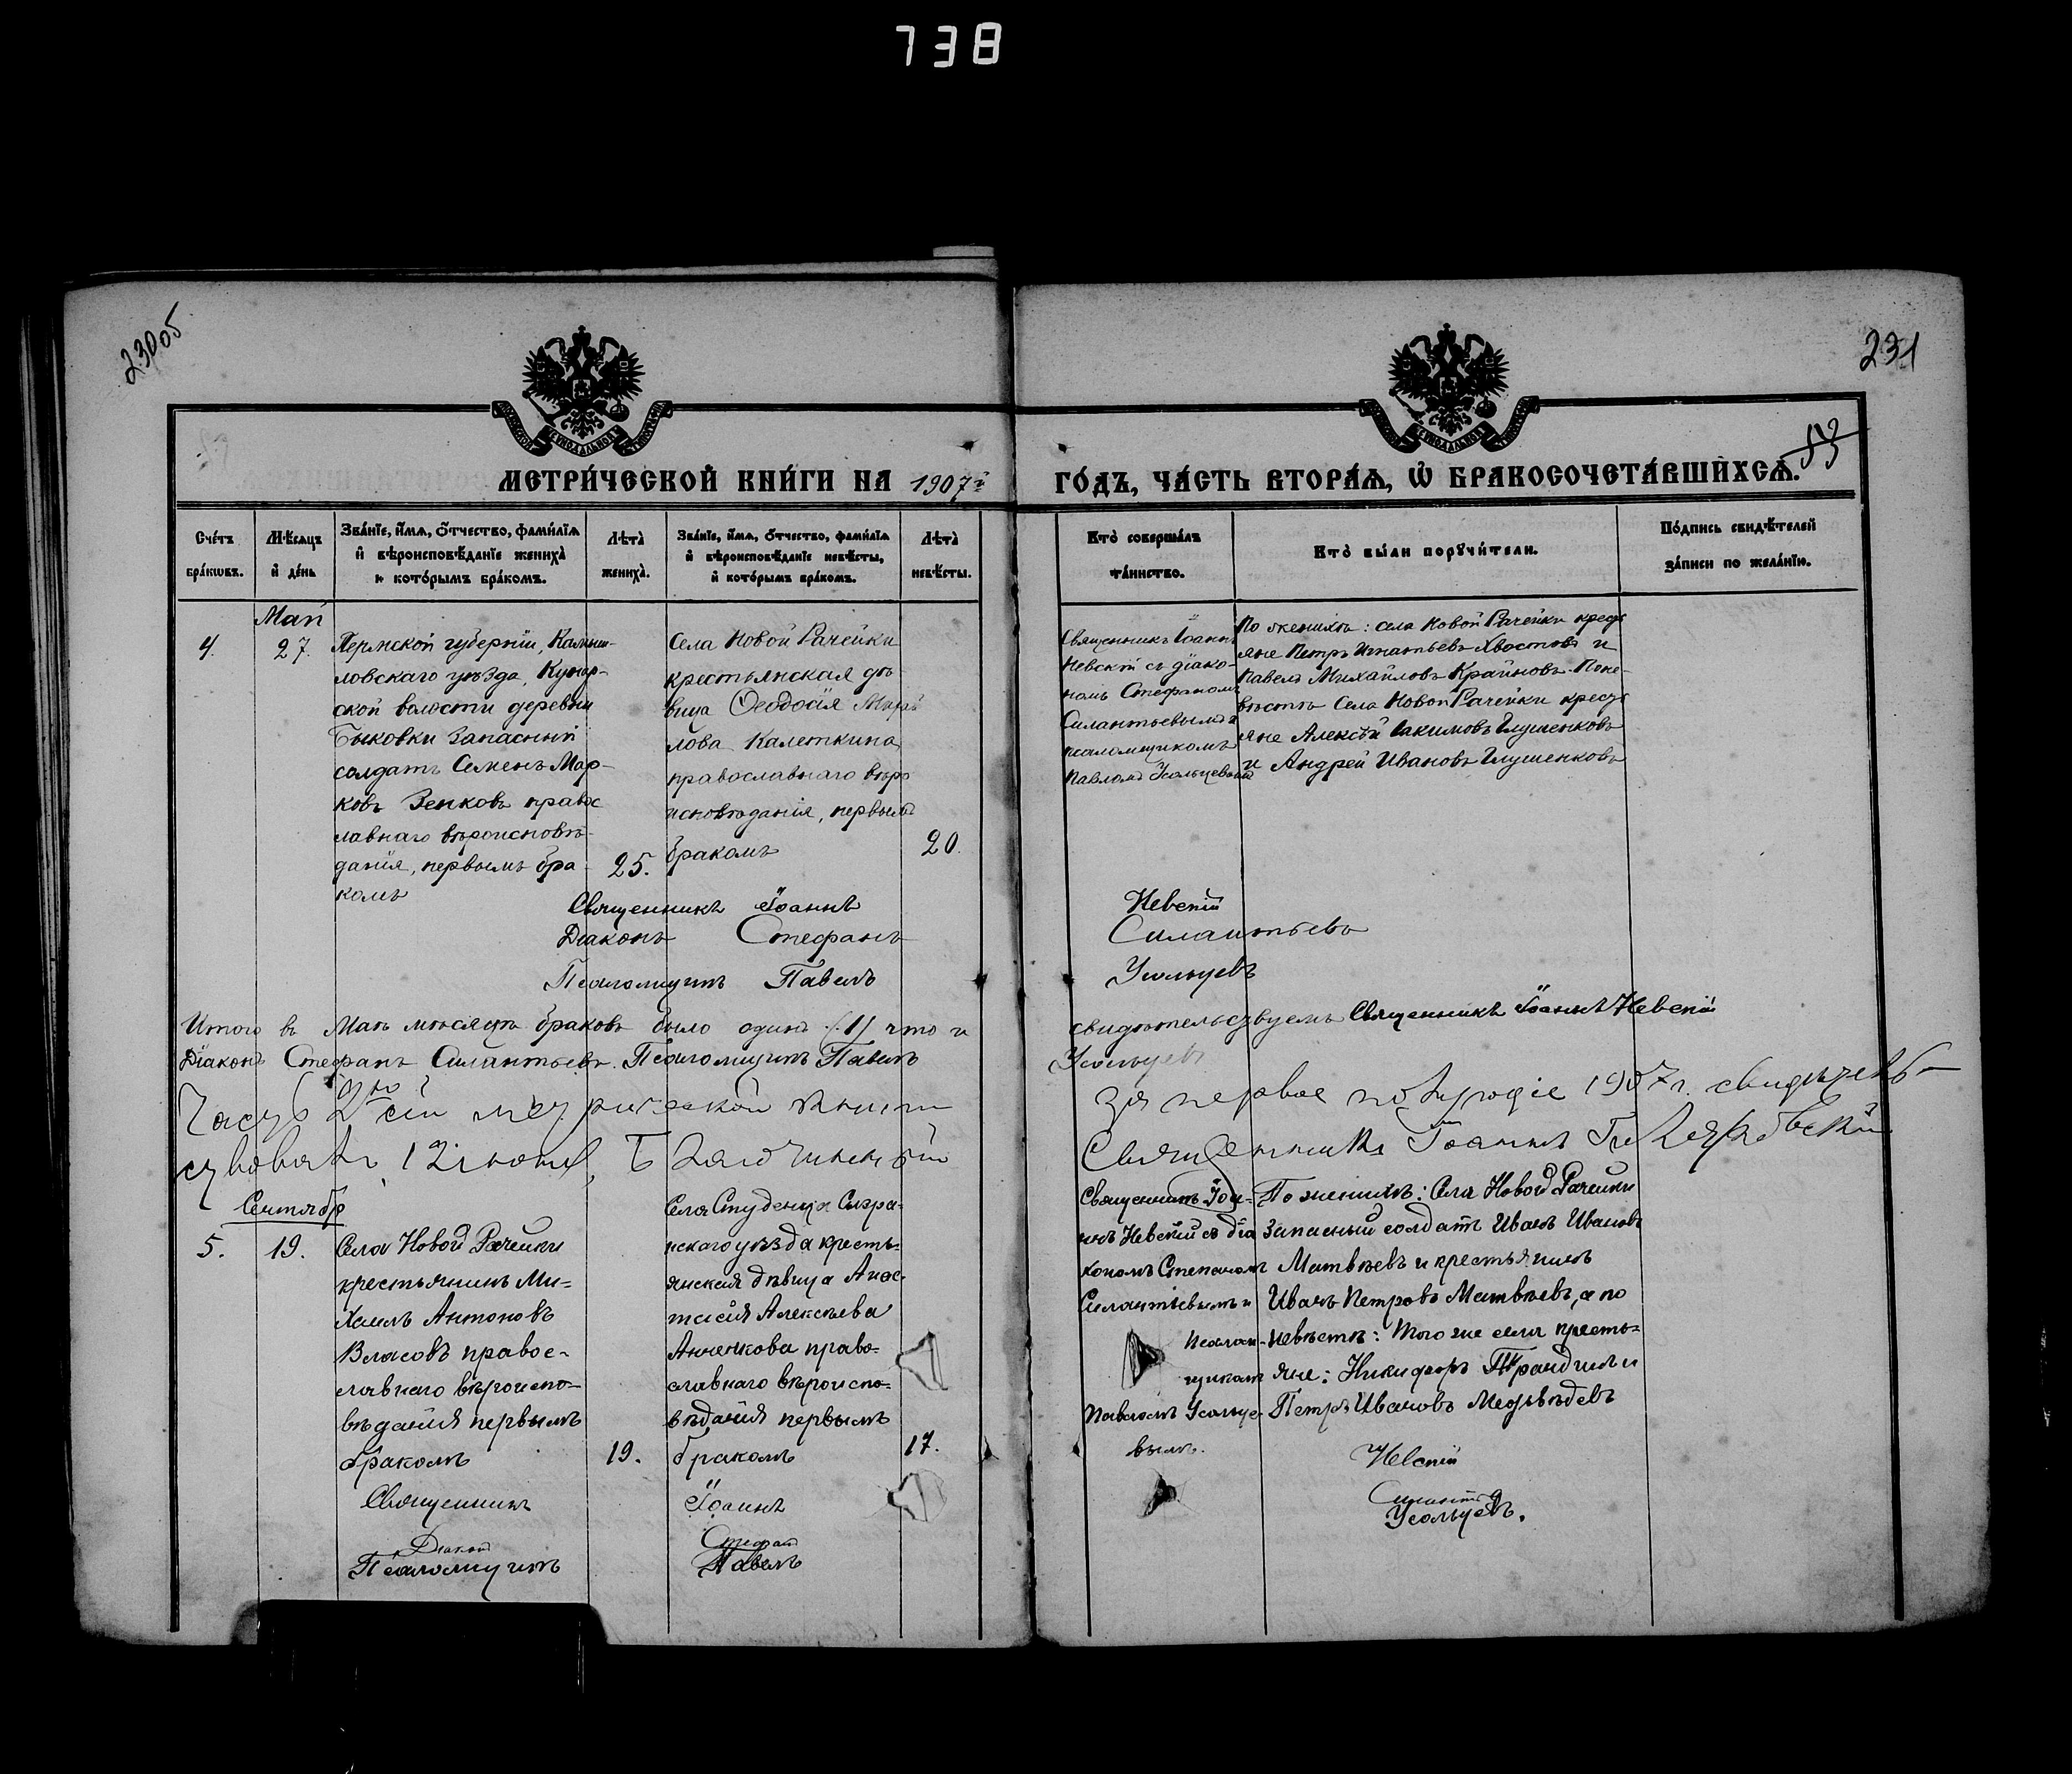 738
230об
231
53
МЕТРИ́ЧЕСКОЙ КНИ́ГИ НА 1907й
ГО́ДЪ, ЧА́СТЬ ВТОРА́Ѧ, Ѽ БРАКОСОЧЕТА́ВШИХСѦ.
Сче́тъ бра́кѡвъ.
Мѣ́сяцъ и҆ де́нь
Зва́нїе, и҆́мѧ, ѻ҆́тчество, фами́лїѧ
и҆ вѣроисповѣ́данїе жениха̀
и кото́рымъ бра́комъ.
Лѣ́та̀ жениха̀.
Зва́нїе, и҆́мѧ, ѻ҆́тчество, фами́лїѧ
и҆ вѣроисповѣ́данїе невѣ́сты,
и҆ кото́рымъ бра́комъ.
Лѣ́та̀ невѣ́сты.
Кто̀ соверша́лъ
та́инство.
Кто̀ бы́ли порꙋчи́тели.
По́дпись свидѣ́телей
за́писи по жела́нїю.
Май
4. 27.
Пермской губернiи, Камыш-
ловскаго уѣзда, Кунар-
ской волости деревни
Быковки Запасный
солдатъ Семенъ Мар-
ковъ Зенковъ правос
лавнаго вѣроисповѣ-
данiя, первымъ бра-
комъ
25.
Села Новой Рачейки
крестьянская дѣ
вица Феодосiя Миха
лова Калеткина
православнаго вѣро
исповѣданiя, первымъ
бракомъ
20.
Священникъ Iоаннъ
Невскiй съ дiако-
номъ Стефаномъ
Силантьевымъ и
псаломщикомъ
Павломъ Усольцевымъ
По женихѣ: села Новой Рачейки кресть
яне Петръ Игнатьевъ Хвостовъ и
Павелъ Михайловъ Крайновъ. По не-
вѣстѣ Села Новой Рачейки кресть
яне Алексѣй Iакимовъ Глушенковъ
и Андрей Ивановъ Глушенковъ
Священникъ Iоаннъ Невскiй
Дiаконъ Стефанъ Силантьевъ
Псаломщикъ Павелъ Усольцевъ
Итого въ Маѣ мѣсяцѣ браковъ было одинъ (1) что и свидѣтельствуемъ Священникъ Iоаннъ Невскiй
Дiаконъ Стефанъ Силантьевъ. Псаломщикъ Павелъ Усольцевъ
Часть 2ю сiи метрической книги за первое полугодiе 1907 г. свидѣтель-
ствовалъ, 12 iюня, Благочинный Священникъ Iоаннъ
Сентябр
5. 19.
Села Новой Рачейки
крестьянинъ Ми=
хаилъ Антоновъ
Власовъ правос-
лавнаго вѣроиспо-
вѣданiя первымъ
бракомъ
19.
Села Студенца Сызра-
нскаго уѣзда кресть=
янская дѣвица Анас-
тасiя Алексѣева
Анненкова право=
славнаго вѣроиспо-
вѣданiя первымъ
бракомъ
17.
Священникъ Iоа-
ннъ Невскiй съ дiа
кономъ Степаномъ
Силантьевымъ и
псалом-
щикомъ
Павломъ Усольце-
вымъ.
По женихѣ: Села Новой Рачейки
запасный солдатъ Иванъ Ивановъ
Матвѣевъ и крестьянинъ
Иванъ Петровъ Матвѣевъ, а по
невѣстѣ: Того же села кресть=
яне: Никифоръ и
Петръ Ивановъ Медвѣдевъ
Священникъ Iоаннъ Невскiй
Дiаконъ Стефанъ Силантьев
Псаломщикъ Павелъ Усольцевъ.